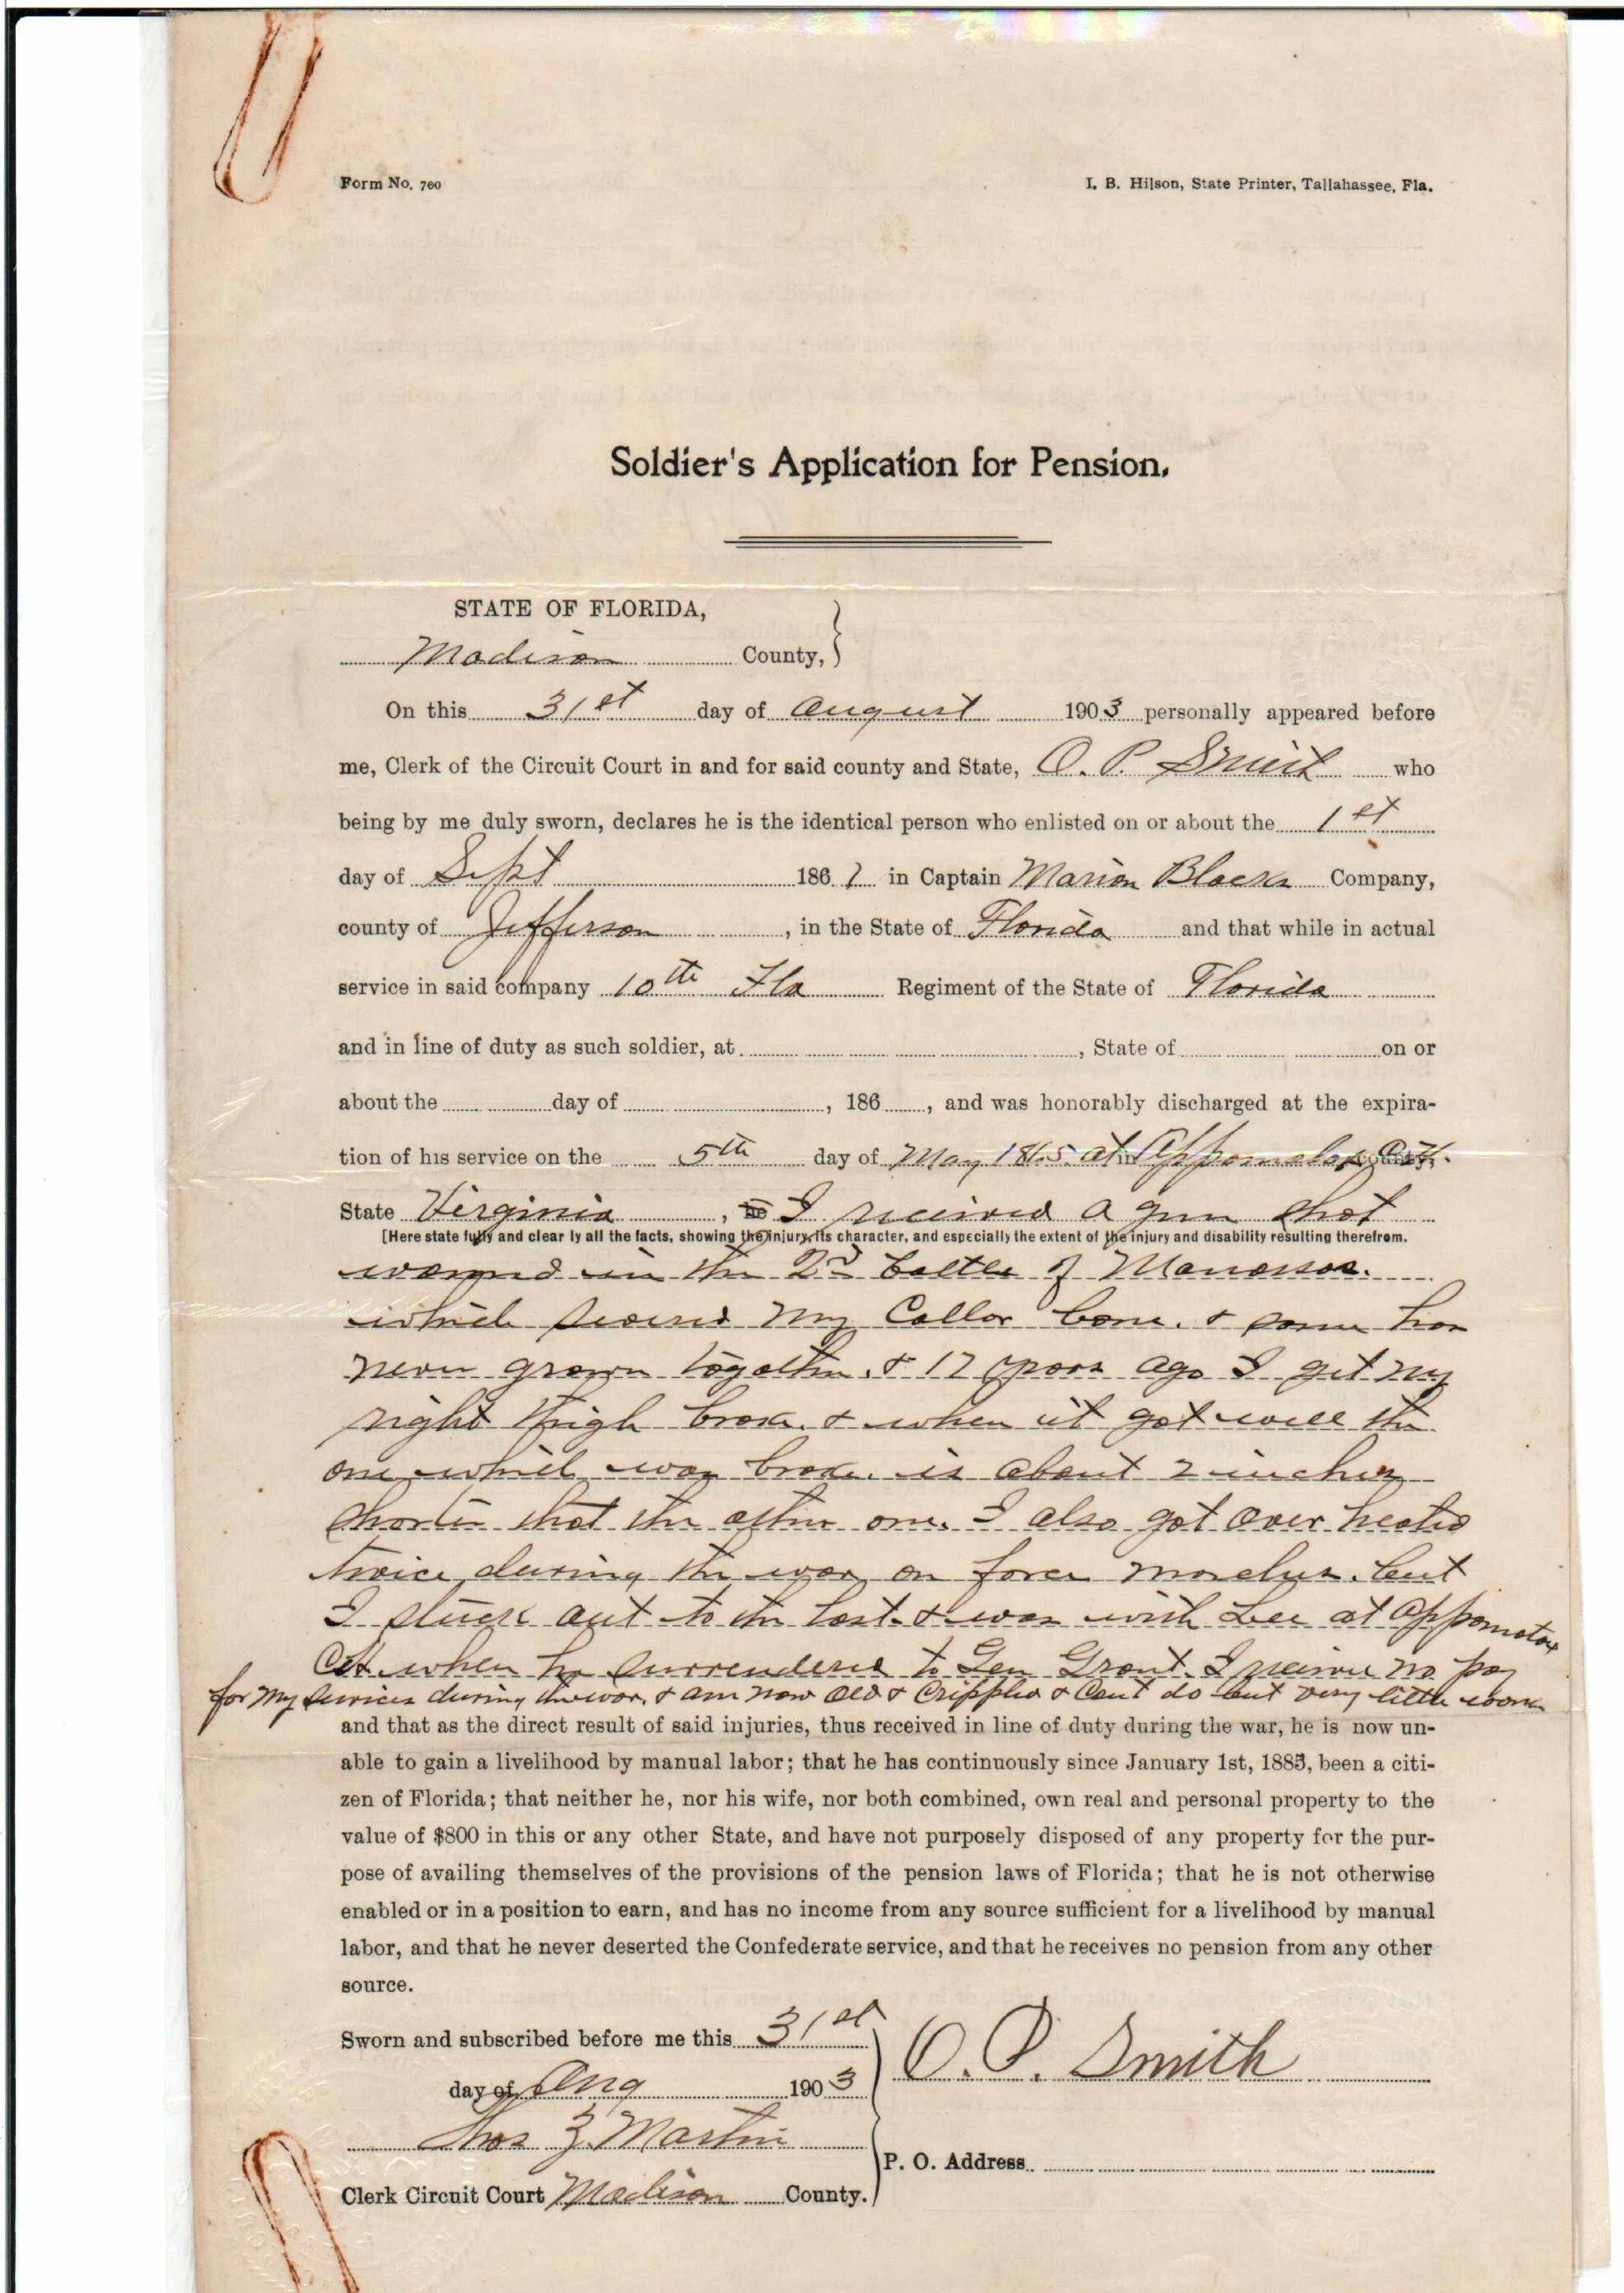 Form No. 760
I. B. Hilson, State Printer, Tallahassee, Fla.
Soldier's Application for Pension.
STATE OF FLORIDA,
Madison County,
On this 31st day of August 1903 personally appeared before
me, Clerk of the Circuit Court in and for said county and State, O. P. Smith who
being by me duly sworn, declares he is the identical person who enlisted on or about the 1st
day of Sept 1861 in Captain Marion Blacks Company,
county of Jefferson, in the State of Florida and that while in actual
service in said company 10th Fla Regiment of the State of Florida
and in line of duty as such soldier, at , State of on or
about the day of , 186 , and was honorably discharged at the expira-
tion of his service on the 5th day of May 1865 at in Appomatox C. H. county,
State Virginia, he I received a gun shot
[Here state fully and clearly all the facts, showing the injury, its character, and especially the extent of the injury and disability resulting therefrom.
wound in the 2d battle of Manassas.
which my Collar bone. & same has
never grown together. & 17 years ago I got my
right thigh broke. & when it got well the
one which was broke. is about 2 inches
shorter that the other one. I also got over heated
twice during the war on force marches. but
I stuck out to the last. & was with Lee at Appomatox
C.H. when he surrendered to Gen Grant. I receive no pay
for my services during the war, & am now old & crippled & cant do but very little work
and that as the direct result of said injuries, thus received in line of duty during the war, he is now un-
able to gain a livelihood by manual labor; that he has continuously since January 1st, 1885, been a citi-
zen of Florida; that neither he, nor his wife, nor both combined, own real and personal property to the
value of $800 in this or any other State, and have not purposely disposed of any property for the pur-
pose of availing themselves of the provisions of the pension laws of Florida; that he is not otherwise
enabled or in a position to earn, and has no income from any source sufficient for a livelihood by manual
labor, and that he never deserted the Confederate service, and that he receives no pension from any other
source.
Sworn and subscribed before me this 31st
day of Aug 1903
O. P. Smith
Thos Z. Martin
P. O. Address
Clerk Circuit Court Madison County.